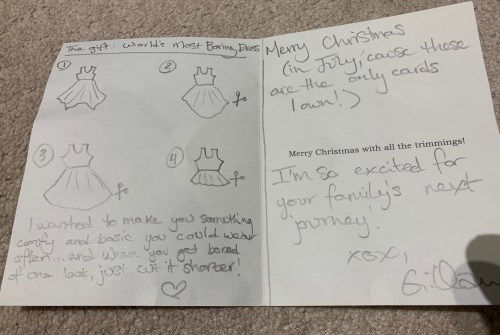 The gift: World's Most Boring Dress
1
2
3
4
I wanted to make you something
comfy and basic you could wear
often... and when you get bored
of one look, just cut it shorter!
Merry Christmas
(in July, 'cause those
are the only cards
I own!)
Merry Christmas with all the trimmings!
I'm so excited for
your family's next
journey!
xox,